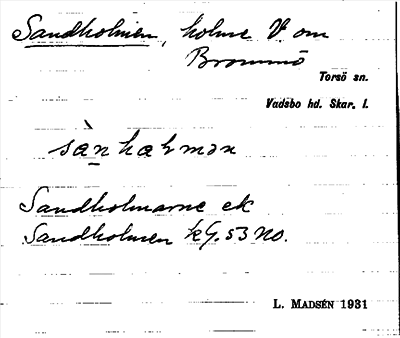 Sandholmen, holme V. om
Brommö
Torsö sn.
Vadsbo hd. Skar. l.
Sandholmarne ek
Sandholmen kG. 53 NO.
L. MADSÉN 1931